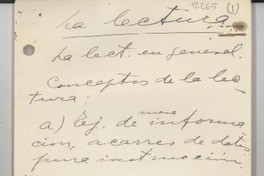 La lectura. 12265 (1)
La lect. en general.
Conceptos de la lec-
tura:
mera
a) lej. de informa
cion, acarreo de datos
pura instrucción